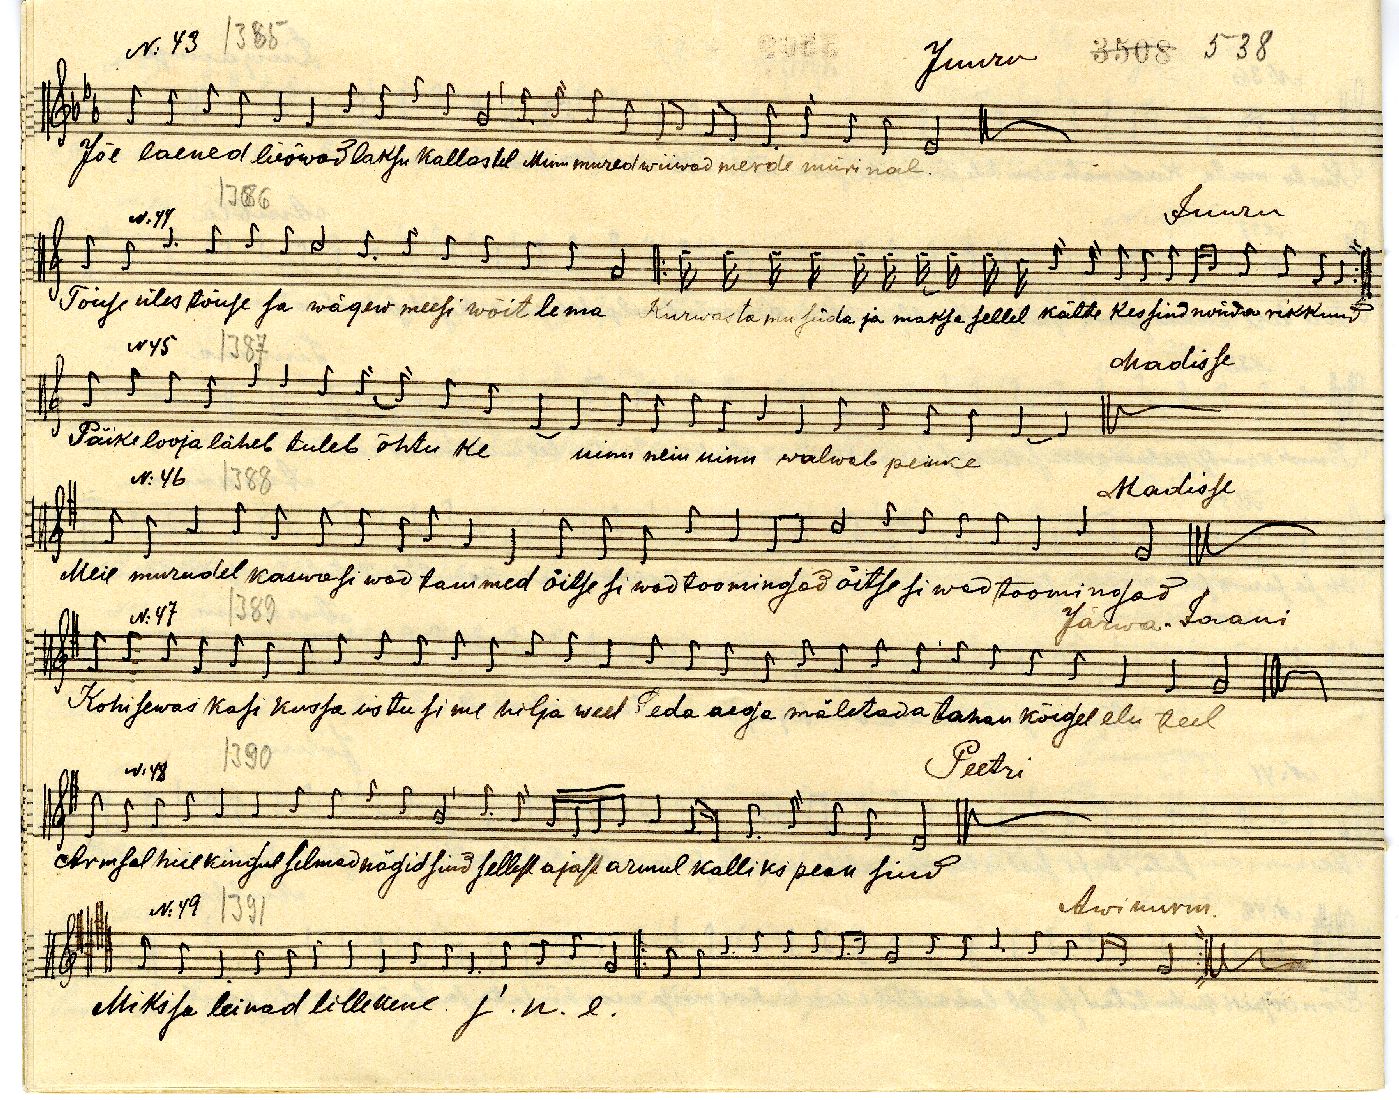 N: 43 1385 Juuru 3508 538
Jõe laened lööwad laksu kallastel Minu mured wiiwad merde mürinal.
N: 44 1386 Juuru
Tõuse üles tõuse sa wägew meesi wõitlema Kurwasta mu süda ja maksa sellel kätte kes sind nõnda rikkund
N 45 1387 Madisse
Päike looja läheb tuleb õhtu ke ninu nein ninu walwab peiuke
N: 46 1388 Madisse
Meie murudel kaswasiwad tammed õitsesiwad toomingad õitsesiwad toomingad
N: 47 1389 Järwa-Jaani
Kohisewas kase kussa istusime hilja weel Seda aega mäletada tahan kõigel elu teel
N: 48 1390 Peetri
Armsal hiilkingul silmad nägid sind sellest ajast armul kalliks pean sind
N: 49 1391 Awinurm.
Miks sa leinad lillekene j. n. e.